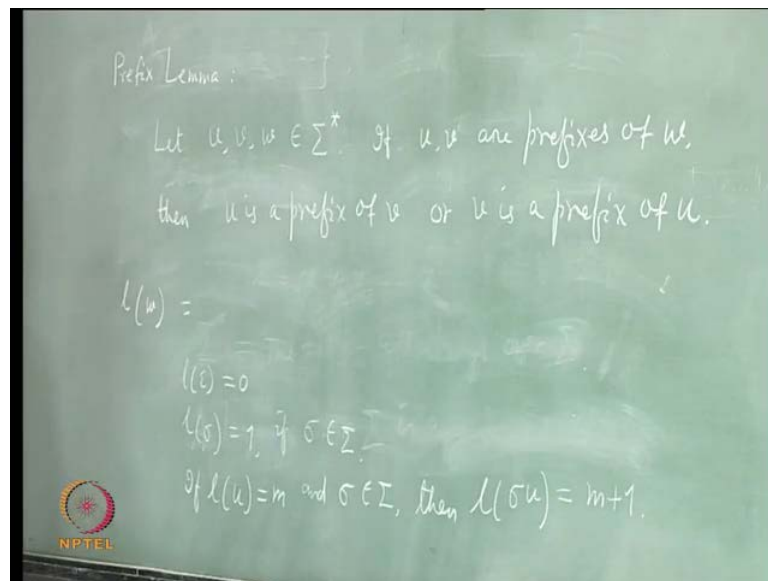 Prefix Lemma:
Let u, v, w ∈ Σ*. If u, v are prefixes of w,
then u is a prefix of v or v is a prefix of u.
l(w) =
l(ε) = 0
l(σ) = 1, if σ ∈ Σ.
If l(u) = m and σ ∈ Σ, then l(σu) = m+1.
NPTEL